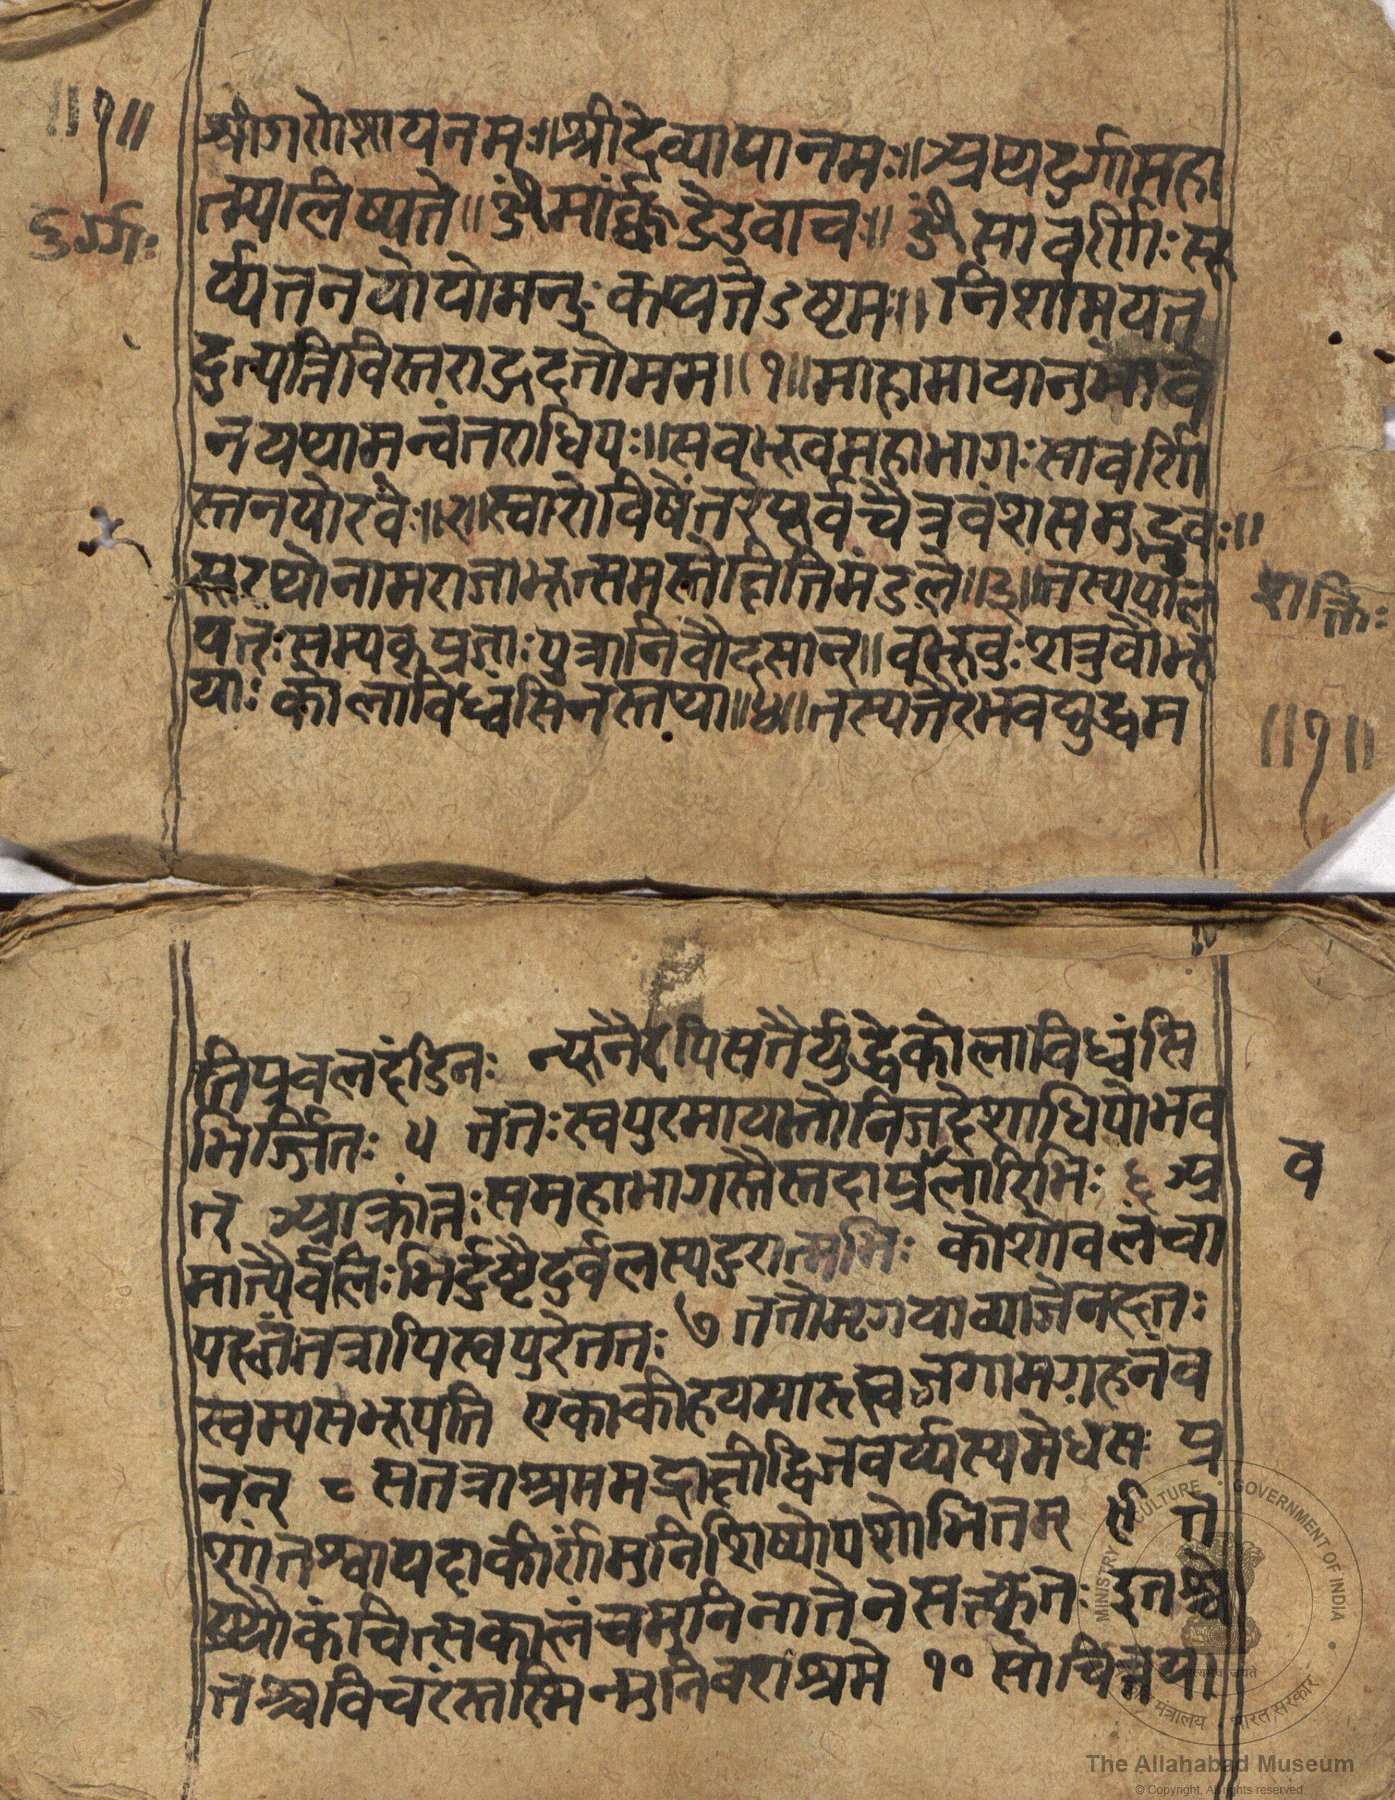 ॥१॥
दुर्गाः
श्रीगणेशायनमः॥श्रीदेव्यायानमः॥अथदुर्गामहा
त्म्यालिष्यते॥ॐमार्कंडेउवाचः॥ॐसावर्णिःसू
र्य्यतनयोयोमनुःकथ्यतेऽष्टमः॥निशामयत
दुत्पत्तिंविस्तराद्गदतोमम॥१॥माहामायानुभावे
नयथामन्वंतराधिपः॥सवभूवमहाभागःसावर्णि
स्तनयोरवेः॥२॥स्वारोचिषेंतरेपूर्वचैत्रवंशसमुद्भवः॥
सुरथोनामराजाभूत्समस्तेक्षितिमंडले॥३॥तस्यपाल
यतःसम्यक्प्रजाःपुत्रानिवौदसान्॥वभूवुःशत्रुवोभू
याःकोलाविध्वंसिनस्तथा॥४॥तस्यतैरभवद्युद्धम
शक्तिः
॥१॥
तिप्रवलदंडिनः न्यूनैरपिसतैर्युद्धेकोलाविध्वंसि
भिर्ज्जितः ५ ततःस्वपुरमायातोनिजदेशाधिपोभव
त् आक्रांतःसमहाभागस्तैस्तदाप्रवलारिभिः ६ अ
व
मात्यैर्वलिःभिर्दुष्टैदुर्वलस्यदुरात्मभिः कोशोवलंचा
पहृतंतत्रापिस्वपुरेततः ७ ततोमृगयाव्याजेनहृतः
स्वम्यसभूपति एकाकीहयमारुह्यजगामगहनंव
नन् ८ सतत्राश्रममद्राक्षीद्विजवर्य्यस्यमेधसः प्र
शांतश्वापदाकीर्णंमुनिशिष्योपशोभितम् ९ त
स्थौकंचित्सकालंचमुनिनातेनसत्कृतः इतश्चे
तश्चविचरंस्तस्मिन्मुनिवराश्रमे १० सोचिंतया
MINISTRY OF CULTURE GOVERNMENT OF INDIA
सत्यमेव जयते
संस्कृति मंत्रालय भारत सरकार
The Allahabad Museum
© Copyright, All rights reserved.